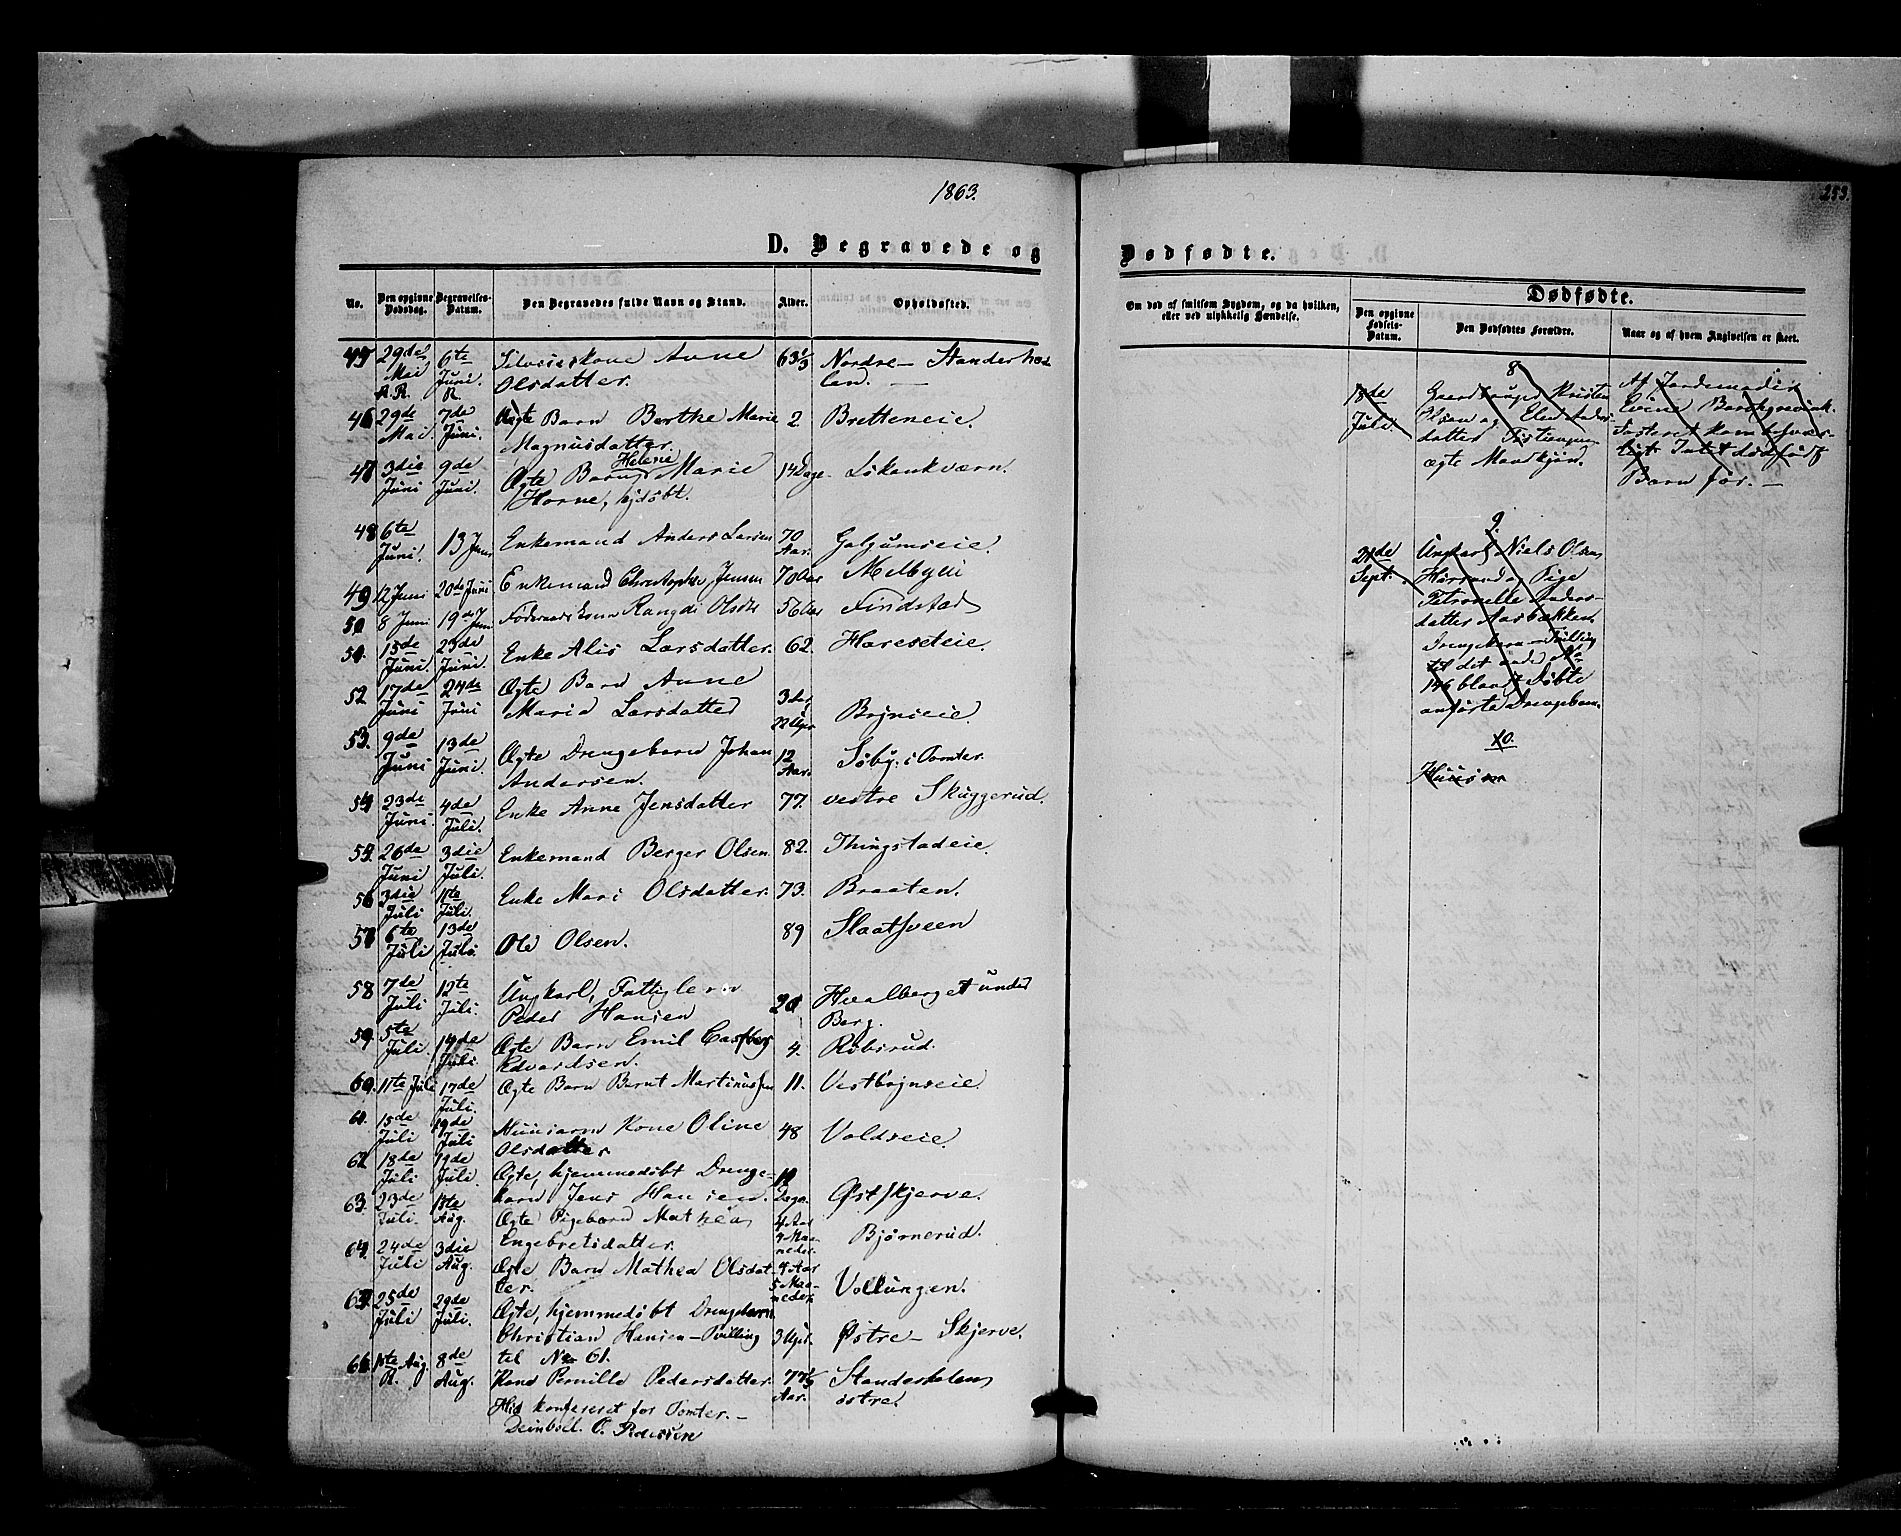 1863.
253.
D. Begravede og
Dødfødte.
No.
Den opgivne Dødsdag.
Begravelses-Datum.
Den Begravedes fulde Navn og Stand.
Alder.
Opholdssted.
Om død af smitsom Sygdom, og da hvilken, eller ved ulykkelig Hændelse.
Dødfødte.
Den opgivne Fødsels-Datum.
Den Dødfødtes Forældre.
Naar og af hvem Angivelsen er skeet.
45 29de Mai R.R. 6te Juni. R. Anne 63 1/3 Nordre
Olsdatter.
46 29de Mai 7de Juni. Ægte Barn Berthe Marie 2 Bretteneie.
Magnusdatter.
47 3die Juni 9de Juni. Ægte Barn Helene Marie 14 Dage
Horne, hjdøbt.
48 6te Juni. 13 Juni Enkemand Anders Larsen 70 Aar. Galgumseie.
49 12 Juni 20de Juni Enkemand Christopher Jensen 70 Aar Melbyeie
50 8 Juni 19de Juni Rangdi Olsdtr 56 Aar Findstad
51. 15de Juni. 23de Juni. Enke Alis Larsdatter. 62. Hareseteie.
52 17de Juni 24de Juni Ægte Barn Anne
Marie Larsdatter 3 Aar Bøjnseie.
53. 9de Juni 13de Juni. Ægte Drengebarn Johan 12 Aar. Søby i Tomter.
Andersen.
54 23de Juni. 4de Juli. Enke Anne Jensdatter 77. vestre Skuggerud.
55. 26de Juni 3die Juli. Enkemand Berger Olsen. 82. Thingstadeie.
56 3die Juli 11te Juli. Enke Mari Olsdatter. 73. Braaten.
57 6te Juli 13de Juli. Ole Olsen. 89 Slaatsveen
58 7de Juli 12te Juli. Ungkarl, Fattiglem 20 Hvalberget under
Peder Hansen Berg.
59. 5te Juli. 14de Juli. Ægte Barn Emil Castberg 4. Robsrud.
Edvardsen.
60. 11te Juli 17de Juli. Ægte Barn Bernt Martinussen 11. Vestbøjnseie.
61. 15de Juli 19de Juli Huusmand Kone Oline 48 Voldseie.
Olsdatter
62 18de Juli 19de Juli. Ægte, hjemmedøbt Drenge-
barn Jens Hansen. Dage. Østskjerve.
63. 23de Juli. 1ste Aug. Ægte Pigebarn Mathea 4 Aar Maaneder. Bjørnerud.
Engebretsdatter.
64. 24de Juli 3die Aug. Ægte Barn Mathea Olsdat- 4 Aar 5 Maaneder Vollungen.
ter.
65. 25de Juli 29de Juli. Ægte, hjemmedøbt Drengebarn
Christian Hansen - Tvilling 3 Uger. Østre - Skjerve.
til No 61.
66. 1ste Aug. R. 8de Aug. Kone Pernille Pedersdatter. 77 1/3 Aar. Standerholen
østre.
Hid konfereret for Tomter. -
Deinboll. O. Pedersen
8
18de Juli. Kristen Af Jordemoder
Olsen og
datter
ægte Mandkjøn. Barn før. -
9.
21de Sept. Ungkarl Niels Olsen
og Pige
Petronelle Anders-
datter Aasbakken.
Drengebarn - Tvilling
til det under No
146 blandt Døbte
anførte Drengebarn.
10.
Huusm